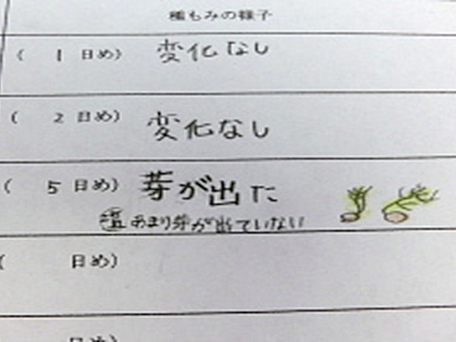 種もみの様子
( 1 日め) 変化なし
( 2 日め) 変化なし
( 5 日め) 芽が出た
塩 あまり芽が出ていない
( 日め)
日め)